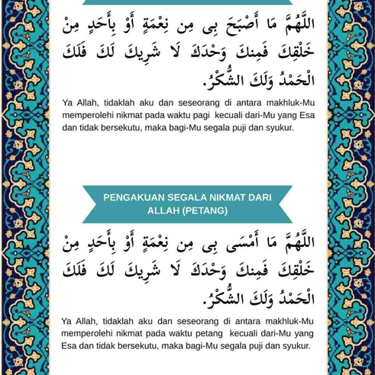 اللَّهُمَّ مَا أَصْبَحَ بِى مِن نِعْمَةٍ أَوْ بِأَحَدٍ مِنْ
خَلْقِكَ فَمِنكَ وَحْدَكَ لَا شَرِيكَ لَكَ فَلَكَ
الْحَمْدُ وَلَكَ الشُّكْرُ.
Ya Allah, tidaklah aku dan seseorang di antara makhluk-Mu
memperolehi nikmat pada waktu pagi kecuali dari-Mu yang Esa
dan tidak bersekutu, maka bagi-Mu segala puji dan syukur.
PENGAKUAN SEGALA NIKMAT DARI
ALLAH (PETANG)
اللَّهُمَّ مَا أَمْسَى بِى مِن نِعْمَةٍ أَوْ بِأَحَدٍ مِنْ
خَلْقِكَ فَمِنكَ وَحْدَكَ لَا شَرِيكَ لَكَ فَلَكَ
الْحَمْدُ وَلَكَ الشُّكْرُ.
Ya Allah, tidaklah aku dan seseorang di antara makhluk-Mu
memperolehi nikmat pada waktu petang kecuali dari-Mu yang
Esa dan tidak bersekutu, maka bagi-Mu segala puji dan syukur.